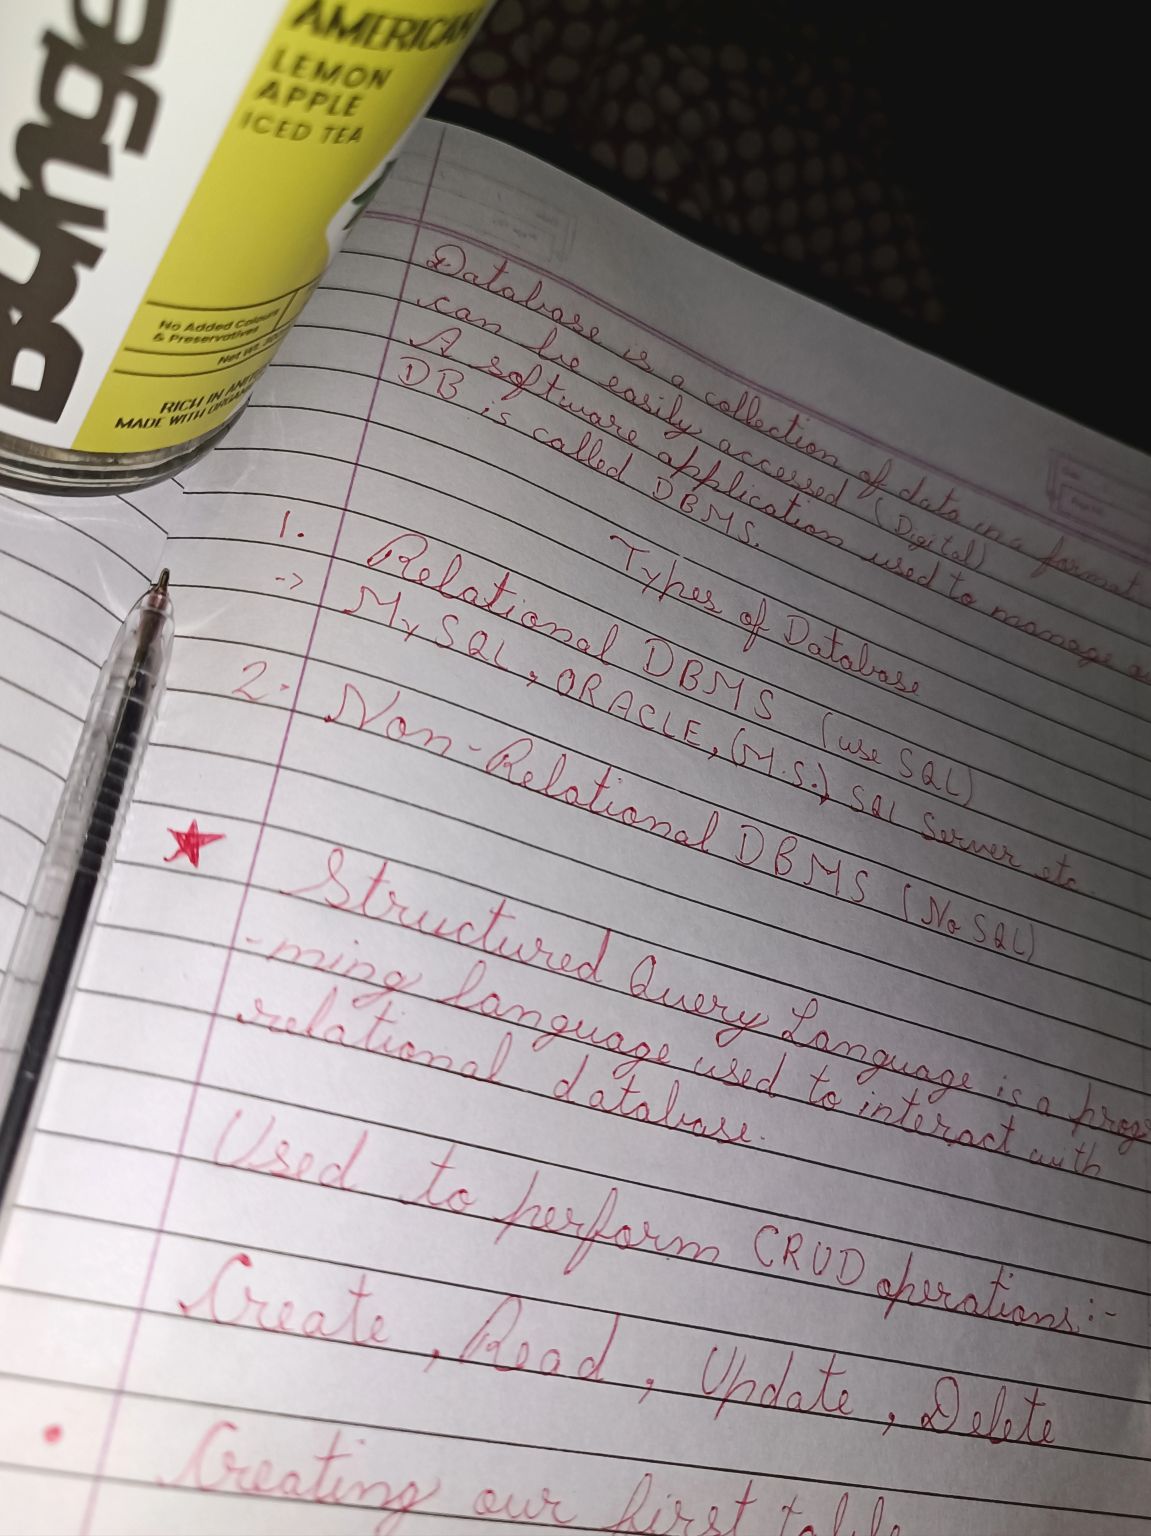 AMERICAN
LEMON
APPLE
ICED TEA
No Added Colours
& Preservatives
Net Wt.
RICH IN
MADE WITH
Database is a collection of data in a format
can be easily accessed (Digital)
A software application used to manage
DB is called DBMS.
Types of Database
1. Relational DBMS (use SQL)
-> MySQL, ORACLE, (M.S.) SQL Server etc
2. Non-Relational DBMS (NoSQL)
★ Structured Query Language is a prog
-ming language used to interact with
relational database.
Used to perform CRUD operations:-
Create, Read, Update, Delete
• Creating our first table